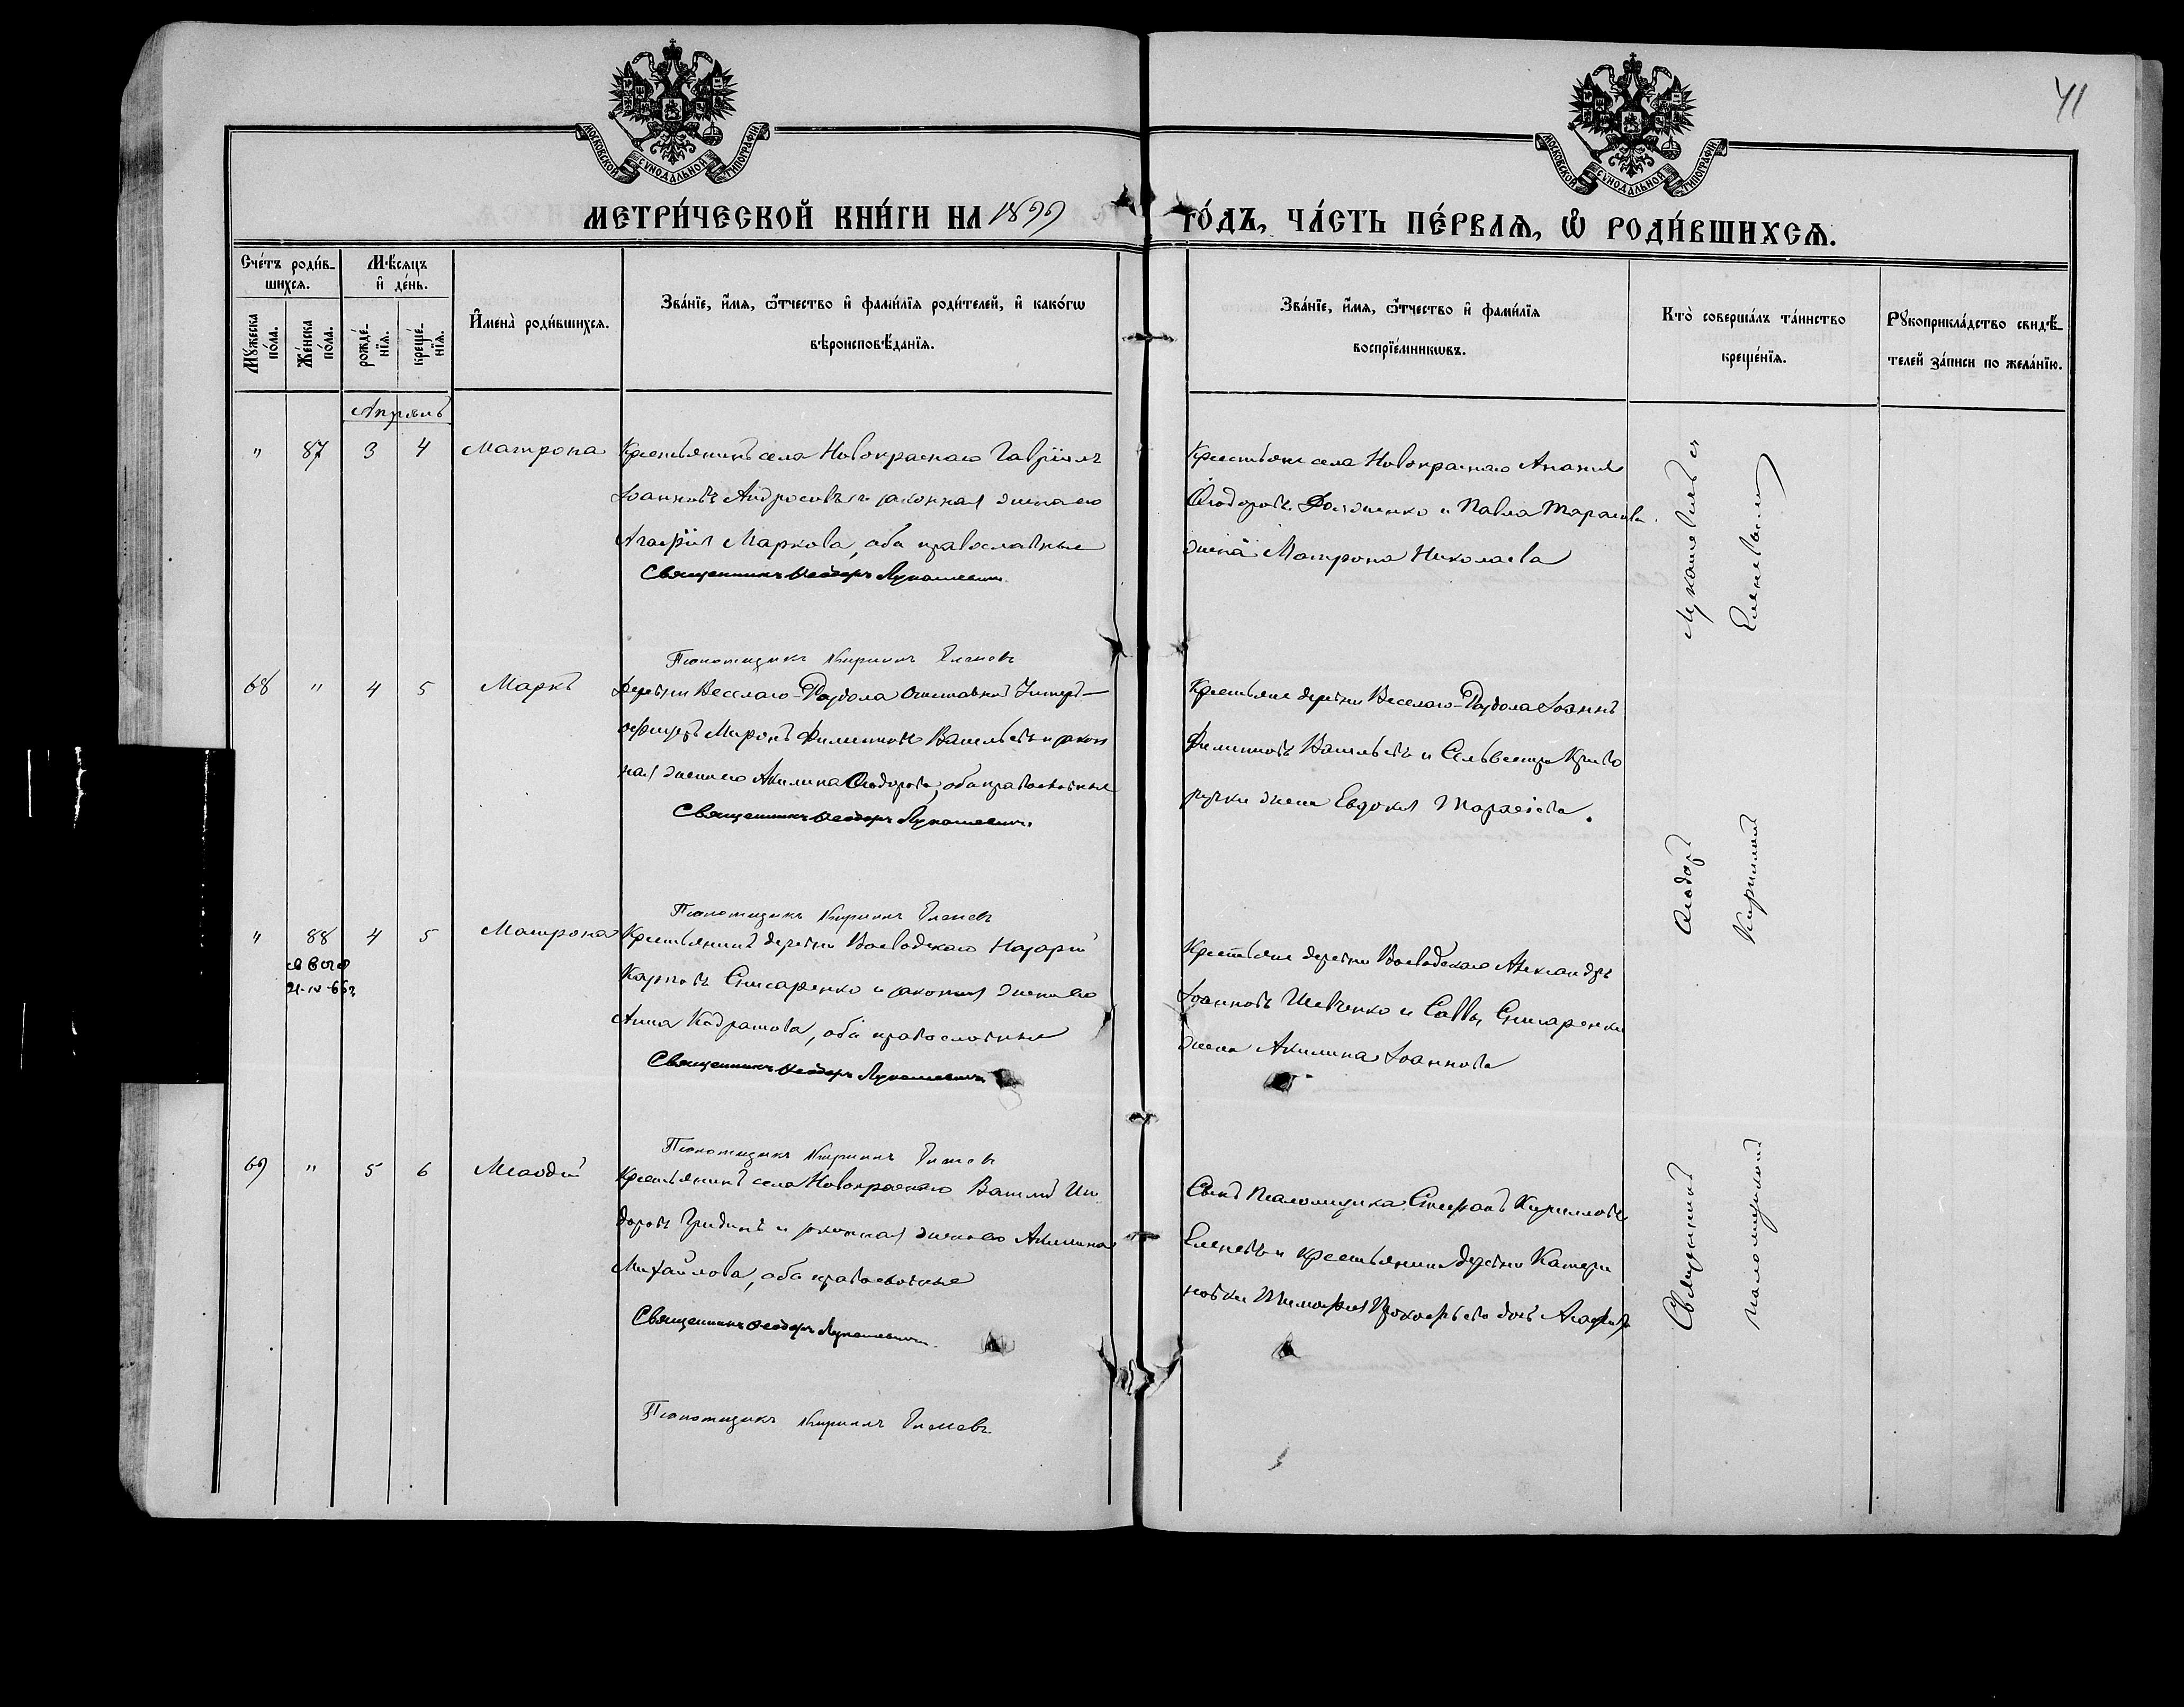 41
МОСКОВСКОЙ СѴНОДАЛЬНОЙ ТИПОГРАФІИ
МОСКОВСКОЙ СѴНОДАЛЬНОЙ ТИПОГРАФІИ
МЕТРИ́ЧЕСКОЙ КНИ́ГИ НА 1899 ГО́ДЪ, ЧА́СТЬ ПЕ́РВАѦ, Ѽ РОДИ́ВШИХСѦ.
Сче́тъ роди́в-
шихсѧ.
Мꙋжеска по́ла.
Же́нска по́ла.
Мѣ́сѧцъ
и҆ де́нь.
рожде́-
нїѧ.
креще́-
нїѧ.
И҆мена̀ роди́вшихсѧ.
Зва́нїе, и҆́мѧ, ѻ҆́тчество и҆ фами́лїѧ роди́телей, и҆ како́гѡ
вѣроисповѣ́данїѧ.
Зва́нїе, и҆́мѧ, ѻ҆́тчество и҆ фами́лїѧ
воспрїе́мникѡвъ.
Кто̀ соверша́лъ та́инство
креще́нїѧ.
Рꙋкоприкла́дство свидѣ́-
телей за́писи по жела́нїю.
Апрѣль
" 87 3 4 Матрона
Крестьянинъ села Новокраснаго Гавріилъ
Іоанновъ Андросовъ и законная жена его
Агафія Маркова, оба православные
Священникъ Ѳеодоръ Лукашевичъ
Псаломщикъ Кириллъ Еленевъ
Крестьяне села Новокраснаго Ананій
Ѳеодоровъ Долженко и Павла Тарасова
жена Матрона Николаева
68 " 4 5 Маркъ
Деревни Веселаго-Раздола отставной Унтеръ-
офицеръ Миронъ Филиповъ Васильевъ и закон
ная жена его Акилина Ѳеодорова, оба православные
Священникъ Ѳеодоръ Лукашевичъ
Псаломщикъ Кириллъ Еленевъ
Крестьяне деревни Веселаго-Раздола Іоаннъ
Филиповъ Васильевъ и Сельвестра Криво
ручки жена Евдокія Тарасіева.
" 88 4 5 Матрона
21-IV-66г
Крестьянинъ деревни Воеводскаго Назарій
Карповъ Снисаренко и законная жена его
Анна Кодратова, оба православные
Священникъ Ѳеодоръ Лукашевичъ
Псаломщикъ Кириллъ Еленевъ
Крестьяне деревни Воеводскаго Александръ
Іоанновъ Шевченко и Саввы Снисаренки
жена Акилина Іоаннова
69 " 5 6 Меѳодій
Крестьянинъ села Новокраснаго Василій Иси
доровъ Гридинъ и законная жена его Акилина
Михайлова, оба православные
Священникъ Ѳеодоръ Лукашевичъ
Псаломщикъ Кириллъ Еленевъ
Сынъ Псаломщика Стефанъ Кирилловъ
Еленевъ и крестьянина деревни Катери
новки Тимофея Прокофьева дочь Агафія
Священникъ Ѳеодоръ Лукашевичъ съ
псаломщикомъ Кирилломъ Еленевымъ